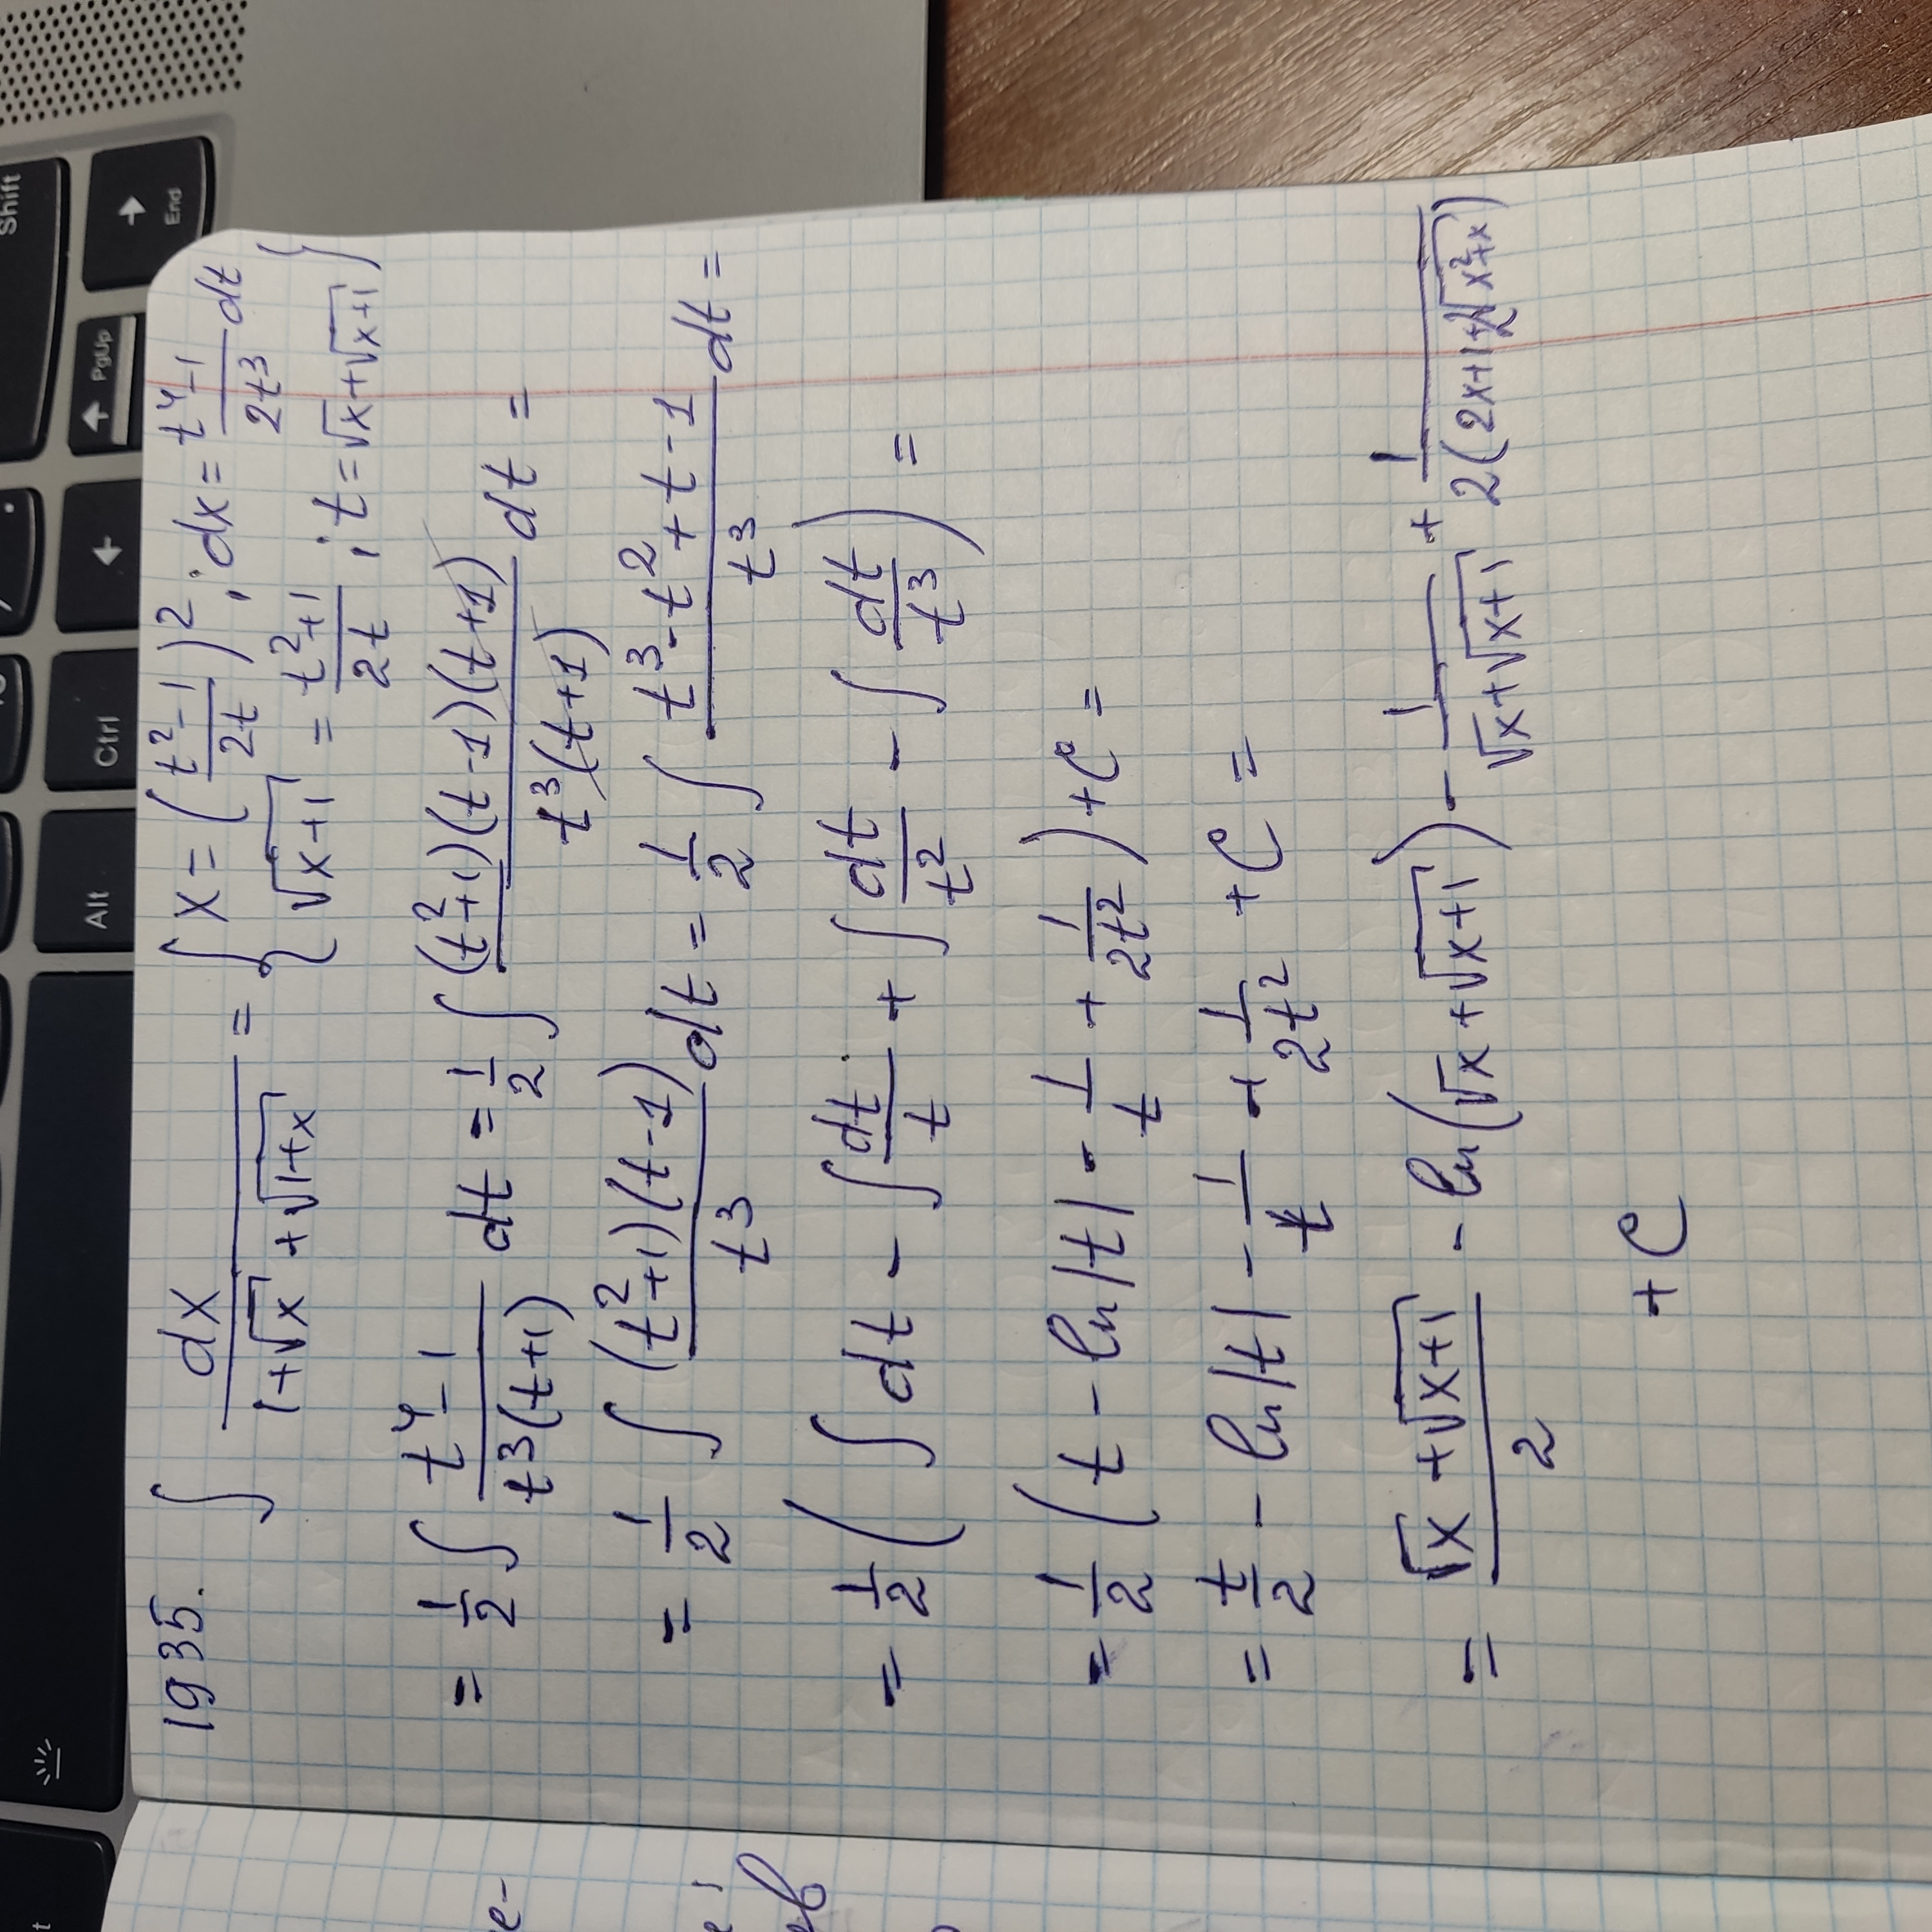 t
Shift
Alt Ctrl ← ↑ PgUp → End
1935. ∫ dx/(1+√x + √(1+x)) = { x = ((t²-1)/(2t))²; dx = (t⁴-1)/(2t³) dt
√(x+1) = (t²+1)/(2t); t = √x + √(x+1) }
= 1/2 ∫ (t⁴-1)/(t³(t+1)) dt = 1/2 ∫ ((t²+1)(t-1)(t+1))/(t³(t+1)) dt =
= 1/2 ∫ ((t²+1)(t-1))/t³ dt = 1/2 ∫ (t³-t²+t-1)/t³ dt =
= 1/2 ( ∫ dt - ∫ dt/t + ∫ dt/t² - ∫ dt/t³ ) =
= 1/2 ( t - ln|t| - 1/t + 1/(2t²) ) + C =
= t/2 - ln|t| - 1/t + 1/(2t²) + C =
= (√x + √(x+1))/2 - ln(√x + √(x+1)) - 1/(√x+√(x+1)) + 1/(2(2x+1+2√(x²+x)))
+ C